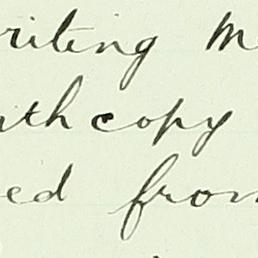 riting M
ith copy
ed from